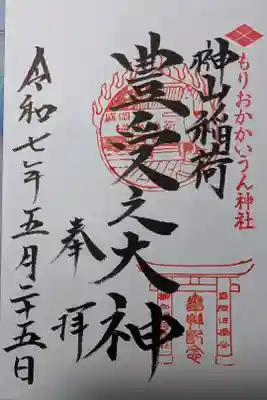 もりおかかいうん神社
榊山稲荷
豊受之大神
奉拝
令和七年五月二十五日